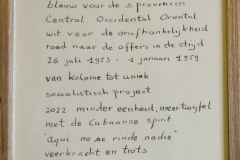 blauw voor de 3 provincies
Central Occidental Oriental
wit voor de onafhankelijkheid
rood naar de offers in de strijd
26 juli 1953 - 1 januari 1959
van kolonie tot uniek
socialistisch project
2022 minder eenheid, meer twijfel
met de Cubaanse spirit
"aqui no se rinde nadie"
veerkracht en trots